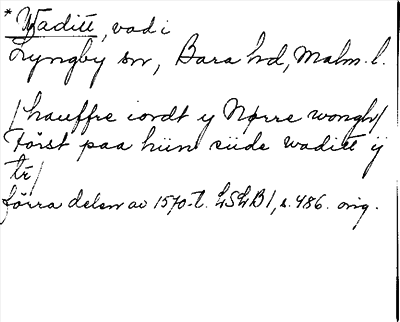 * Waditt, vad i
Lyngby sn, Bara hd, Malm. l.
/hauffre iordt y Nørre wongh/
Först paa hiin siide waditt ij
tr/
förra delen av 1570-t. LSLB1, s. 486. orig.